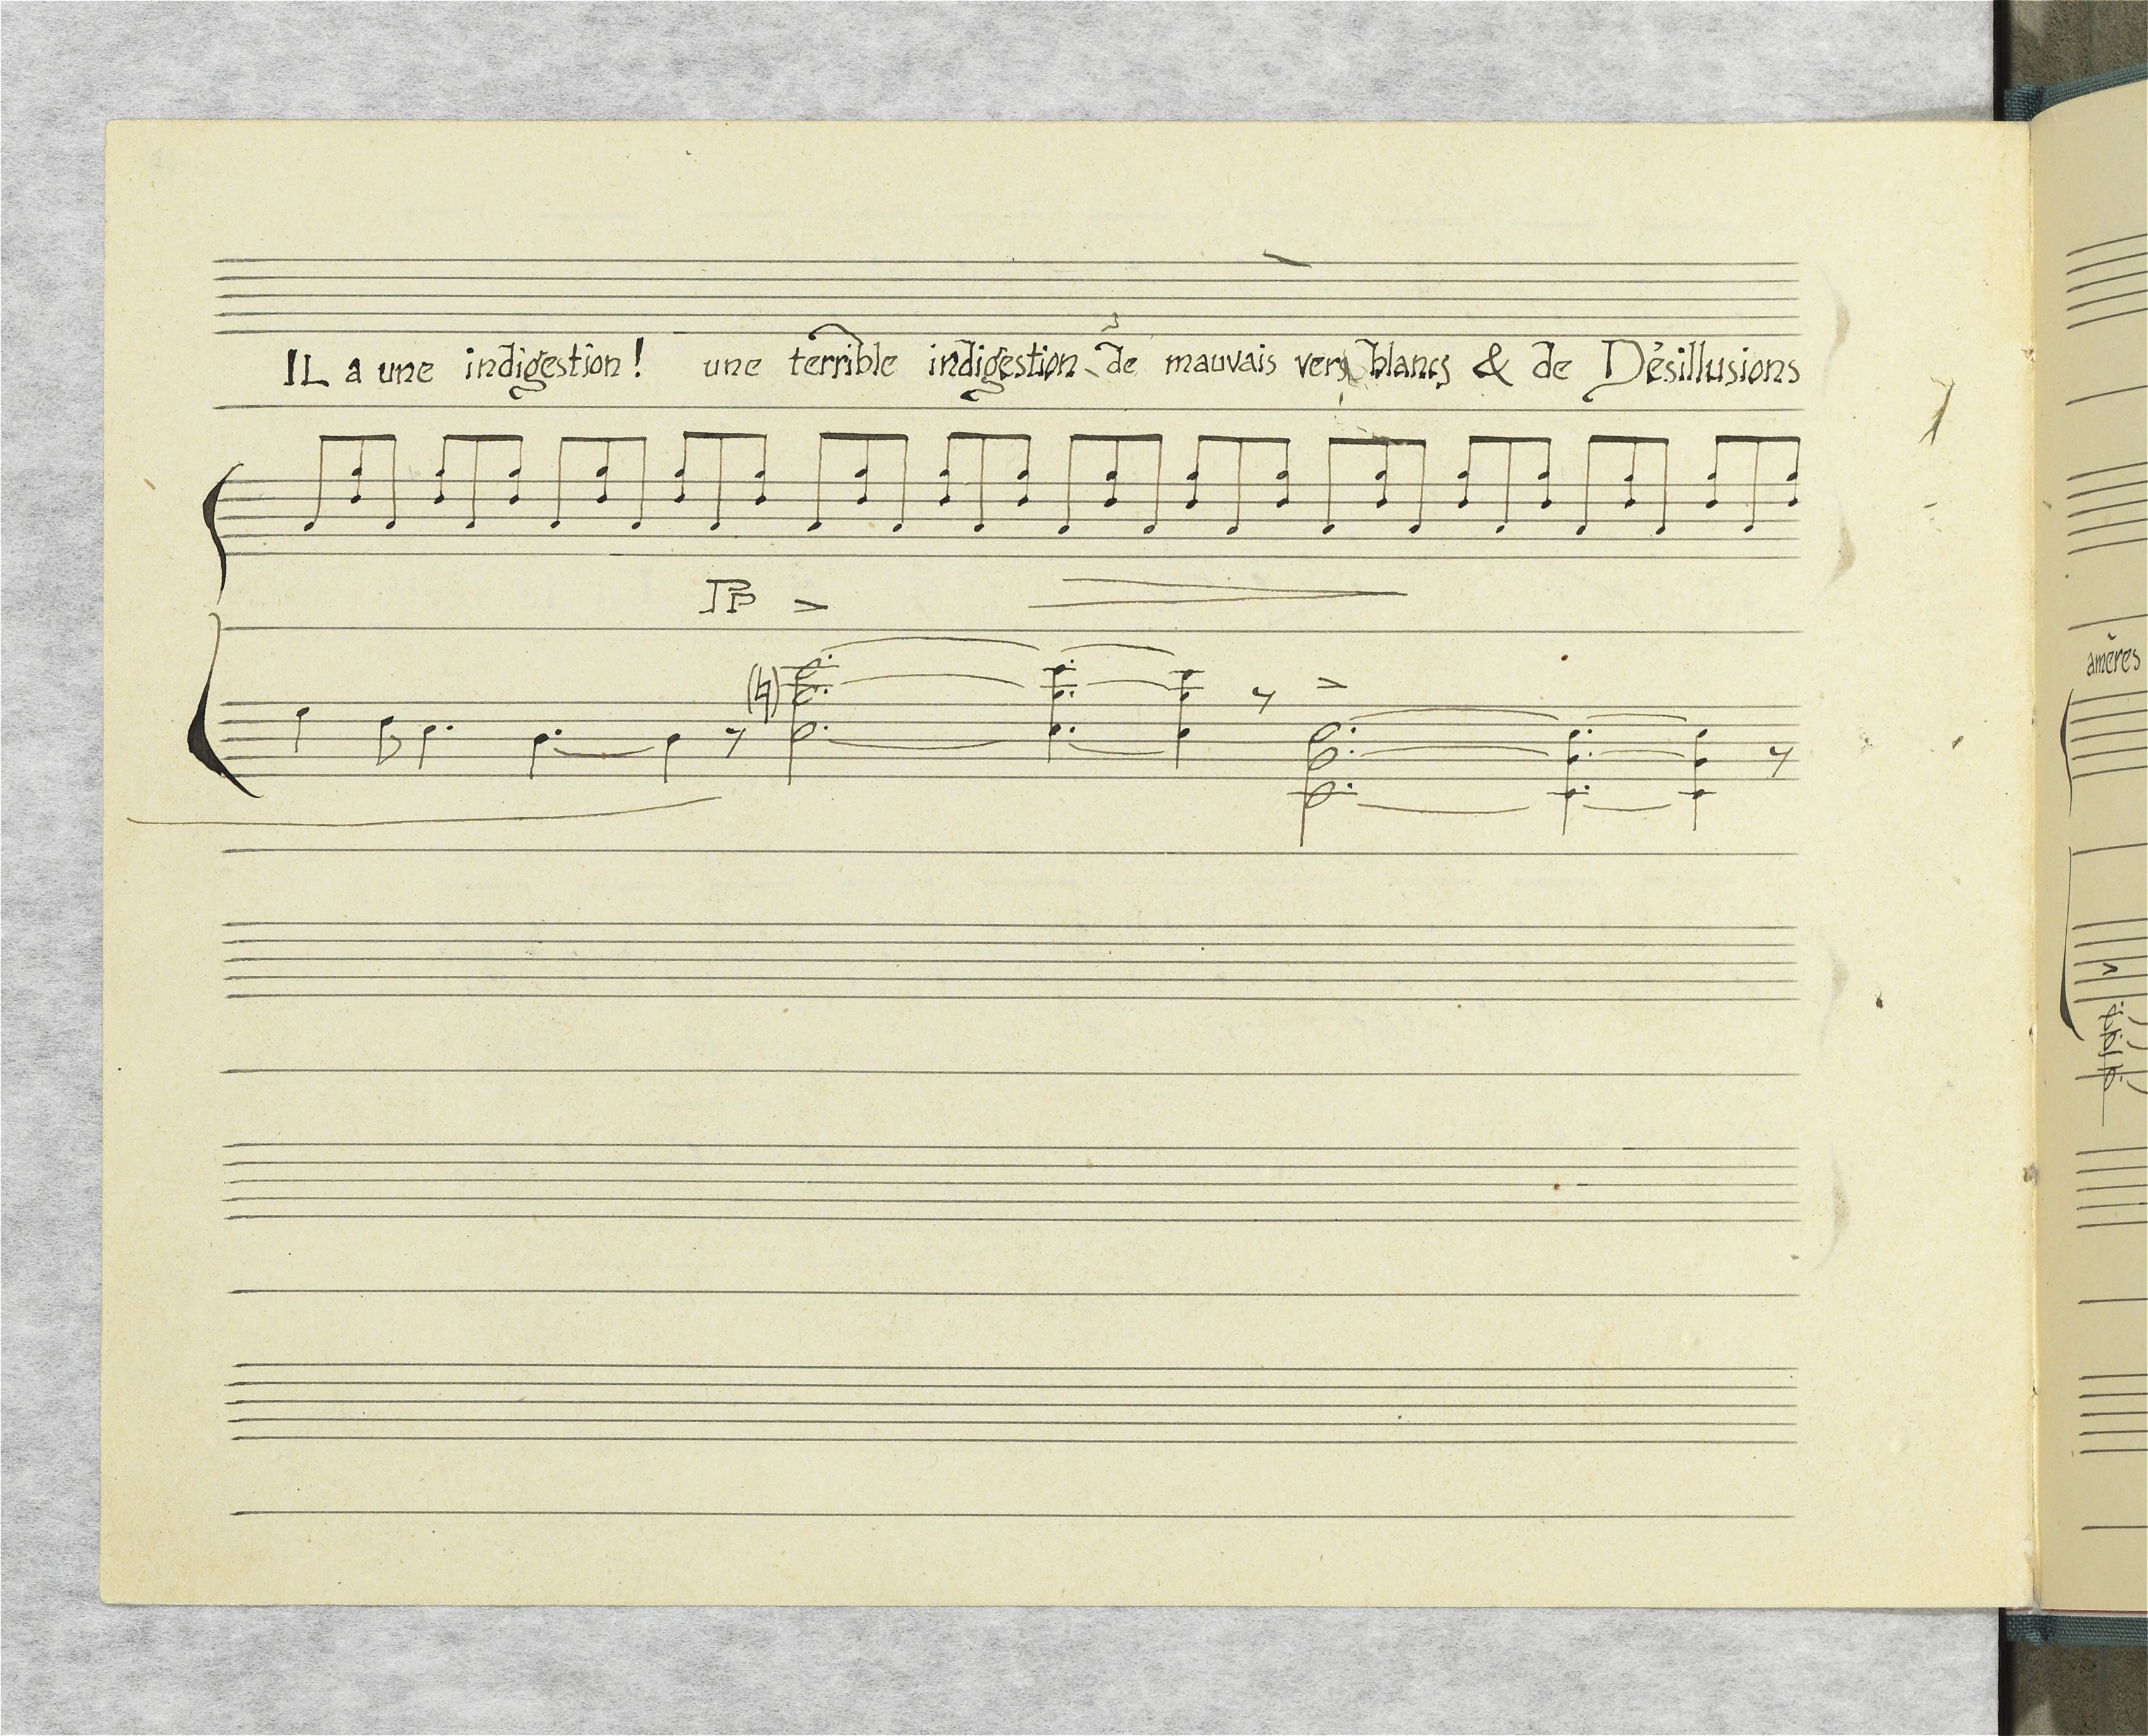 IL a une indigestion! une terrible indigestion de mauvais vers blancs & de Désillusions
PP
amères